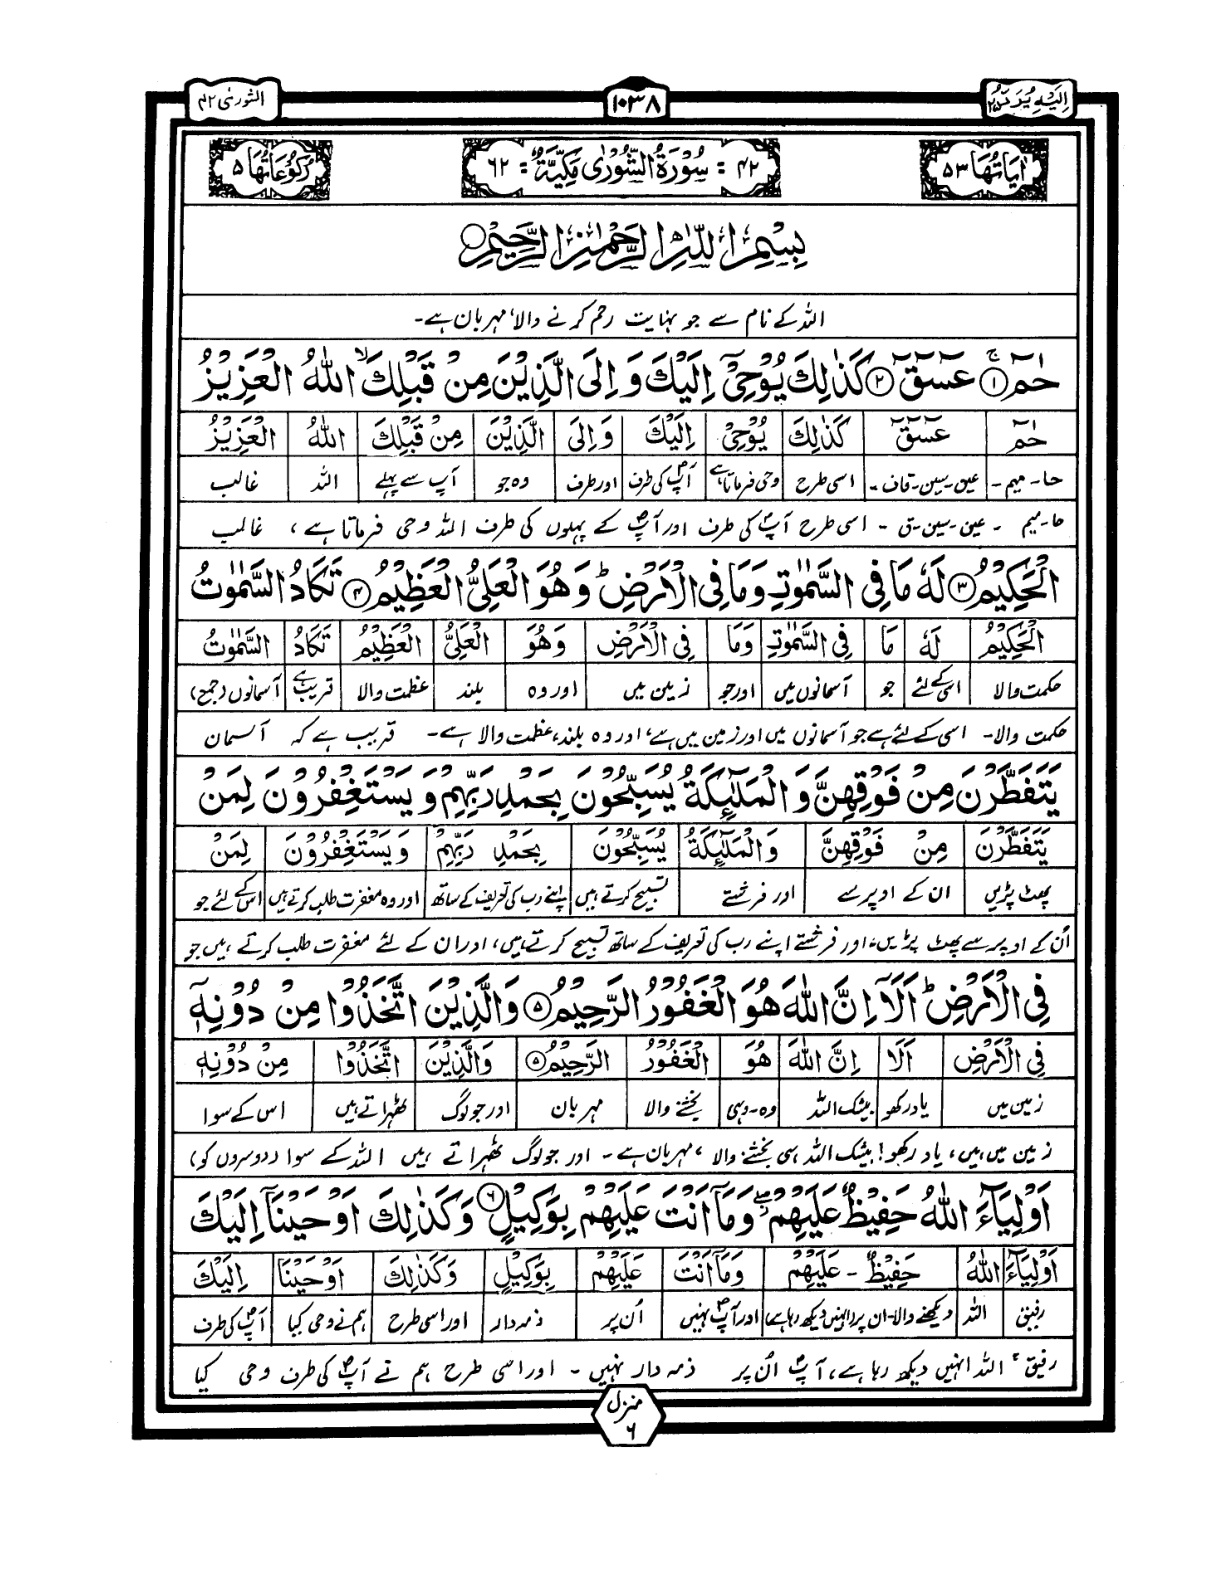 اِلَيْهِ يُرَدُّ ٢٥ ١٠٣٨ الشورٰى ٤٢
اٰيَاتُهَا ٥٣ ٤٢ = سُوْرَةُ الشُّوْرٰى مَكِّيَّةٌ = ٦٢ رُكُوْعَاتُهَا ٥
بِسْمِ اللّٰهِ الرَّحْمٰنِ الرَّحِيْمِ
اللہ کے نام سے جو نہایت رحم کرنے والا، مہربان ہے۔
حٰمٓ ۚ ﴿١﴾ عٓسٓقٓ ﴿٢﴾ كَذٰلِكَ يُوْحِيْٓ اِلَيْكَ وَ اِلَى الَّذِيْنَ مِنْ قَبْلِكَ ۙ اللّٰهُ الْعَزِيْزُ
حٰمٓ عٓسٓقٓ كَذٰلِكَ يُوْحِيْٓ اِلَيْكَ وَ اِلَى الَّذِيْنَ مِنْ قَبْلِكَ اللّٰهُ الْعَزِيْزُ
حا۔ میم ۔ عین ۔ سین ۔ قاف ۔ اسی طرح وحی فرماتا ہے آپؐ کی طرف اور طرف وہ جو آپ سے پہلے اللہ غالب
حا۔ میم ۔ عین ۔ سین ۔ ق ۔ اسی طرح آپؐ کی طرف اور آپؐ کے پہلوں کی طرف اللہ وحی فرماتا ہے، غالب
الْحَكِيْمُ ﴿٣﴾ لَهٗ مَا فِي السَّمٰوٰتِ وَمَا فِي الْاَرْضِ ؕ وَهُوَ الْعَلِيُّ الْعَظِيْمُ ﴿٤﴾ تَكَادُ السَّمٰوٰتُ
الْحَكِيْمُ لَهٗ مَا فِي السَّمٰوٰتِ وَمَا فِي الْاَرْضِ وَهُوَ الْعَلِيُّ الْعَظِيْمُ تَكَادُ السَّمٰوٰتُ
حکمت والا اسی کے لئے جو آسمانوں میں اور جو زمین میں اور وہ بلند عظمت والا قریب ہے آسمانوں (جمع)
حکمت والا۔ اسی کے لئے ہے جو آسمانوں میں اور زمین میں ہے، اور وہ بلند، عظمت والا ہے۔ قریب ہے کہ آسمان
يَتَفَطَّرْنَ مِنْ فَوْقِهِنَّ وَالْمَلٰٓئِكَةُ يُسَبِّحُوْنَ بِحَمْدِ رَبِّهِمْ وَيَسْتَغْفِرُوْنَ لِمَنْ
يَتَفَطَّرْنَ مِنْ فَوْقِهِنَّ وَالْمَلٰٓئِكَةُ يُسَبِّحُوْنَ بِحَمْدِ رَبِّهِمْ وَيَسْتَغْفِرُوْنَ لِمَنْ
پھٹ پڑیں ان کے اوپر سے اور فرشتے تسبیح کرتے ہیں اپنے رب کی تعریف کے ساتھ اور وہ مغفرت طلب کرتے ہیں اس کے لئے جو
اُن کے اوپر سے پھٹ پڑیں، اور فرشتے اپنے رب کی تعریف کے ساتھ تسبیح کرتے ہیں، اور ان کے لئے مغفرت طلب کرتے ہیں جو
فِي الْاَرْضِ ؕ اَلَآ اِنَّ اللّٰهَ هُوَ الْغَفُوْرُ الرَّحِيْمُ ﴿٥﴾ وَالَّذِيْنَ اتَّخَذُوْا مِنْ دُوْنِهٖٓ
فِي الْاَرْضِ اَلَا اِنَّ اللّٰهَ هُوَ الْغَفُوْرُ الرَّحِيْمُ ﴿٥﴾ وَالَّذِيْنَ اتَّخَذُوْا مِنْ دُوْنِهٖٓ
زمین میں یاد رکھو بیشک اللہ وہ ۔ وہی بخشنے والا مہربان اور جو لوگ ٹھہراتے ہیں اس کے سوا
زمین میں ہیں، یاد رکھو! بیشک اللہ ہی بخشنے والا، مہربان ہے۔ اور جو لوگ ٹھہراتے ہیں اللہ کے سوا (دوسروں کو)
اَوْلِيَآءَ اللّٰهُ حَفِيْظٌ عَلَيْهِمْ ۖ وَمَآ اَنْتَ عَلَيْهِمْ بِوَكِيْلٍ ﴿٦﴾ وَكَذٰلِكَ اَوْحَيْنَآ اِلَيْكَ
اَوْلِيَآءَ اللّٰهُ حَفِيْظٌ ۔ عَلَيْهِمْ وَمَآ اَنْتَ عَلَيْهِمْ بِوَكِيْلٍ وَكَذٰلِكَ اَوْحَيْنَآ اِلَيْكَ
رفیق اللہ دیکھنے والا۔ ان پر (انہیں دیکھ رہا ہے) اور آپؐ نہیں اُن پر ذمہ دار اور اسی طرح ہم نے وحی کیا آپؐ کی طرف
رفیق، اللہ انہیں دیکھ رہا ہے، آپؐ اُن پر ذمہ دار نہیں ۔ اور اسی طرح ہم نے آپؐ کی طرف وحی کیا
منزل
٦